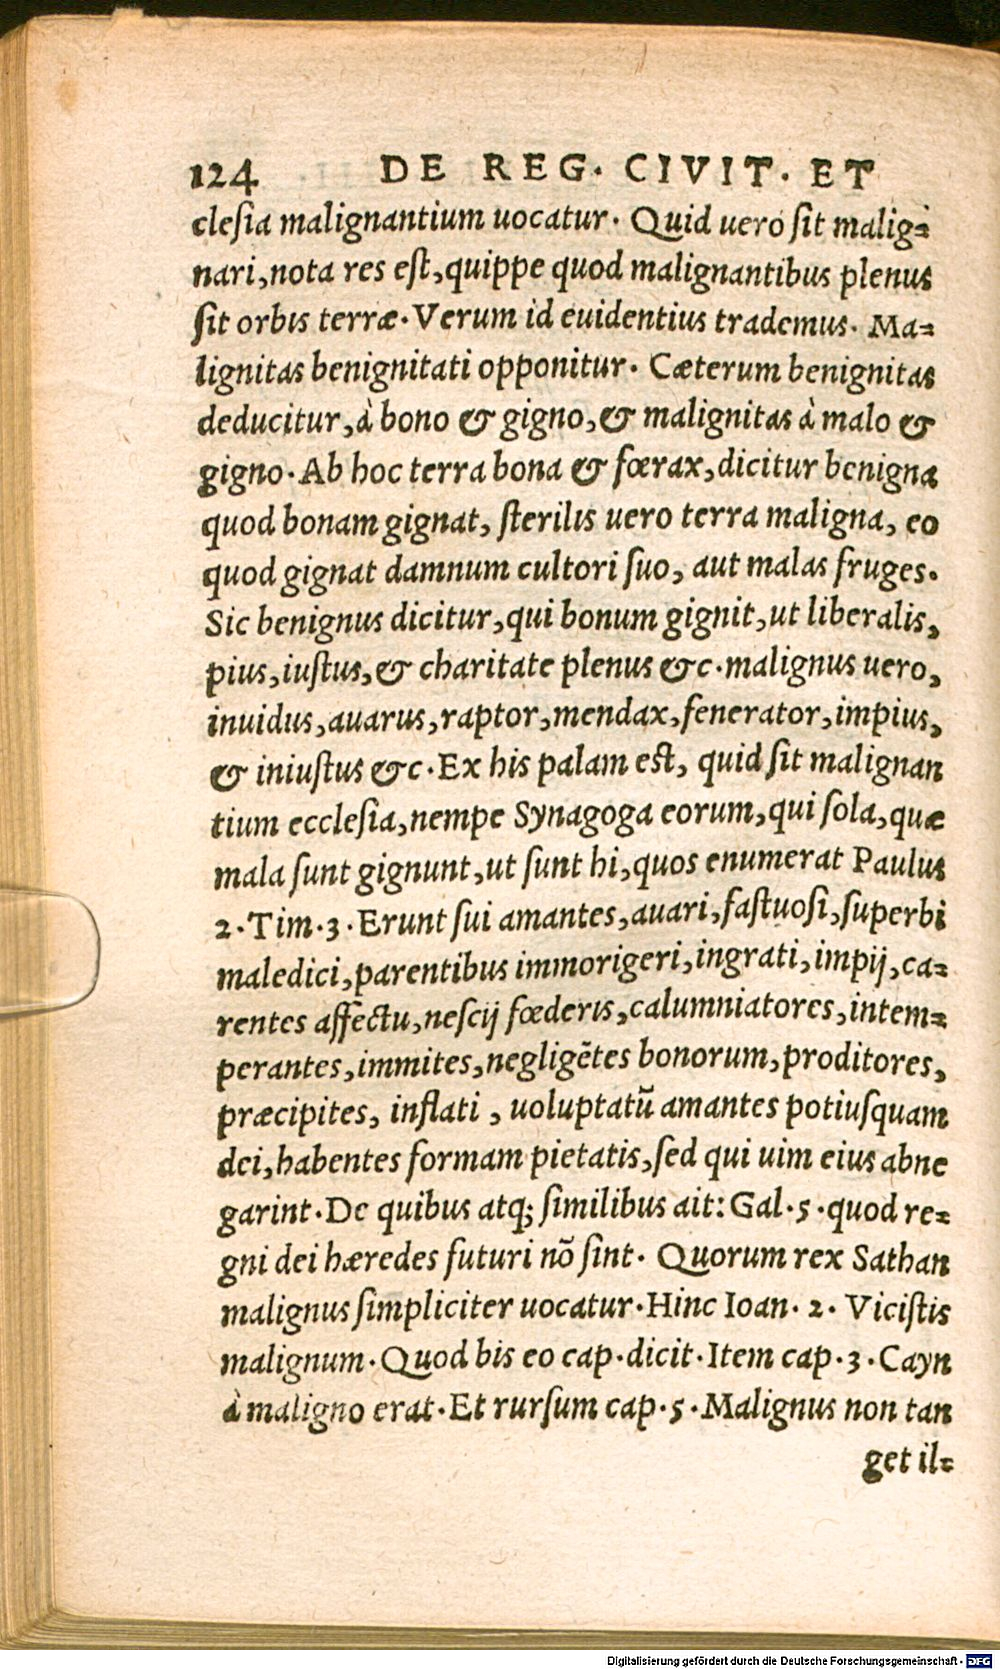 124 DE REG. CIVIT. ET
clesia malignantium uocatur. Quid uero sit malig-
nari, nota res est, quippe quod malignantibus plenus
sit orbis terræ. Verum id euidentius trademus. Ma-
lignitas benignitati opponitur. Cæterum benignitas
deducitur, à bono & gigno, & malignitas à malo &
gigno. Ab hoc terra bona & fœrax, dicitur benigna
quod bonam gignat, sterilis uero terra maligna, eo
quod gignat damnum cultori suo, aut malas fruges.
Sic benignus dicitur, qui bonum gignit, ut liberalis,
pius, iustus, & charitate plenus &c. malignus uero,
inuidus, auarus, raptor, mendax, fenerator, impius,
& iniustus &c. Ex his palam est, quid sit malignan
tium ecclesia, nempe Synagoga eorum, qui sola, quæ
mala sunt gignunt, ut sunt hi, quos enumerat Paulus
2. Tim. 3. Erunt sui amantes, auari, fastuosi, superbi
maledici, parentibus immorigeri, ingrati, impij, ca-
rentes affectu, nescij fœderis, calumniatores, intem-
perantes, immites, negligẽtes bonorum, proditores,
præcipites, inflati, uoluptatũ amantes potiusquam
dei, habentes formam pietatis, sed qui uim eius abne
garint. De quibus atq; similibus ait: Gal. 5. quod re-
gni dei hæredes futuri nõ sint. Quorum rex Sathan
malignus simpliciter uocatur. Hinc Ioan. 2. Vicistis
malignum. Quod bis eo cap. dicit. Item cap. 3. Cayn
à maligno erat. Et rursum cap. 5. Malignus non tan
get il-
Digitalisierung gefördert durch die Deutsche Forschungsgemeinschaft - DFG